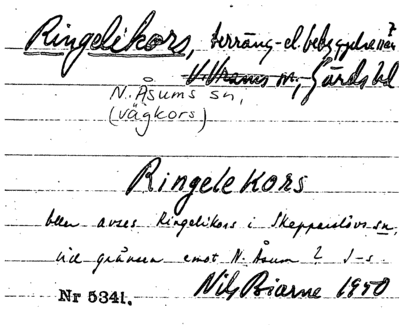 Ringelikors, terräng- el. bebyggelsen?
V. Vrams sn, Gärds hd
N. Åsums sn,
(vägkors)
Ringelekors
avses Ringelikors i Skepparslövs sn,
vid gränsen emot N. Åsum? J-s
Nils Biarne 1950
Nr 5341.